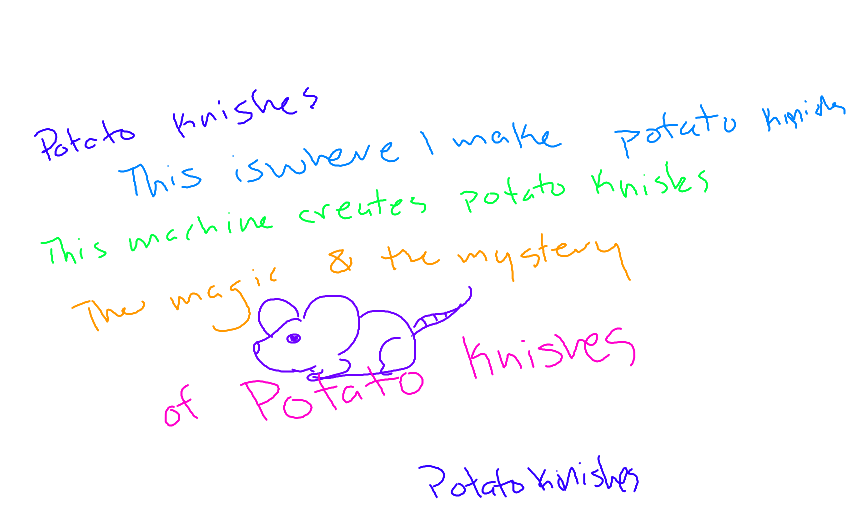 Potato Knishes
This is where I make potato Knish
This machine creates potato Knishes
The magic & the mystery
of Potato Knishes
Potato Knishes